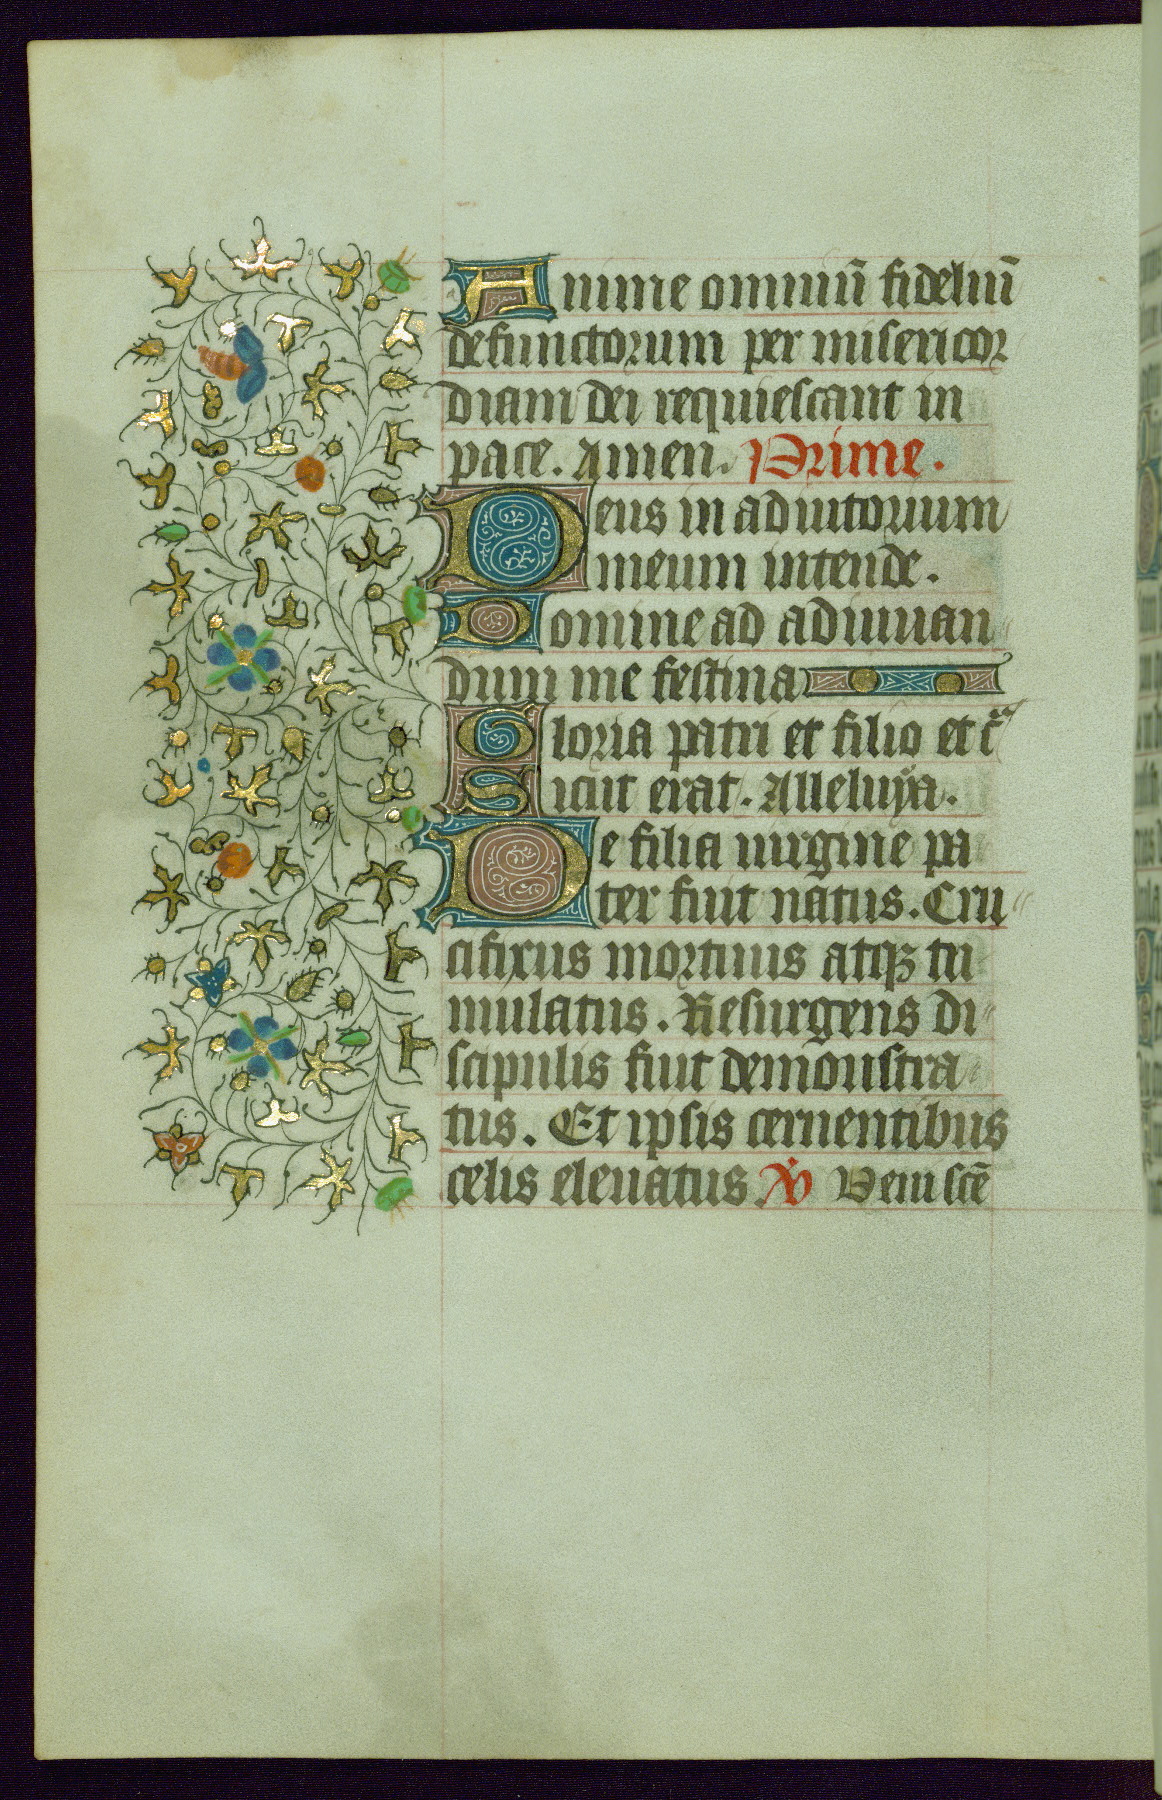 Anime omniū fideliū
defunctorum per misericor
diam dei requiescant in
pace. Amen. Prime.
Deus in adiutorium
meum intende.
Domine ad adiuuan
dum me festina
Gloria patri et filio et c̄
Sicut erat. Alleluÿa.
De filia uirgine pa
ter fuit natus. Cru
cifixus mortuus atqꝫ tu
mulatus. Resurgens di
scipulis fuit demonstra
tus. Et ipsis cernentibus
celis eleuatus. Veni sc̄e